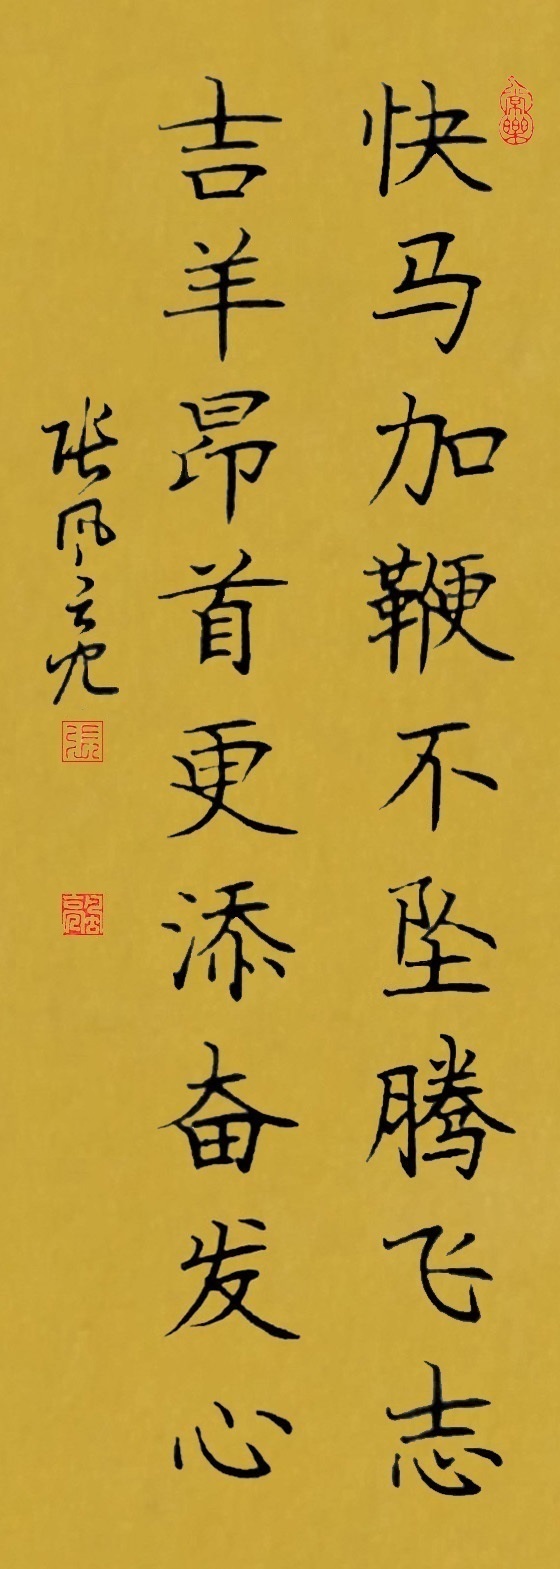 快马加鞭不坠腾飞志
吉羊昂首更添奋发心
张风云
张